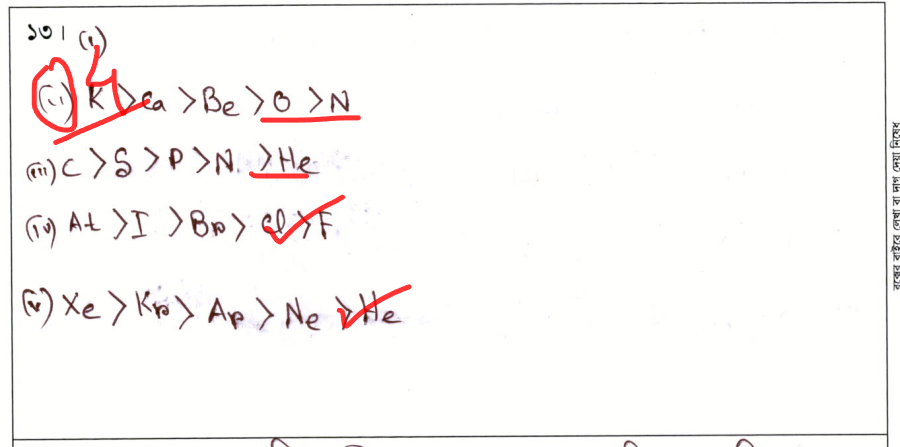 ১৩। (i)
(ii) K > Ca > Be > O > N
(iii) C > S > P > N > He
(iv) At > I > Br > Cl > F
(v) Xe > Kr > Ar > Ne > He
বক্সের বাইরে লেখা বা দাগ দেয়া নিষেধ